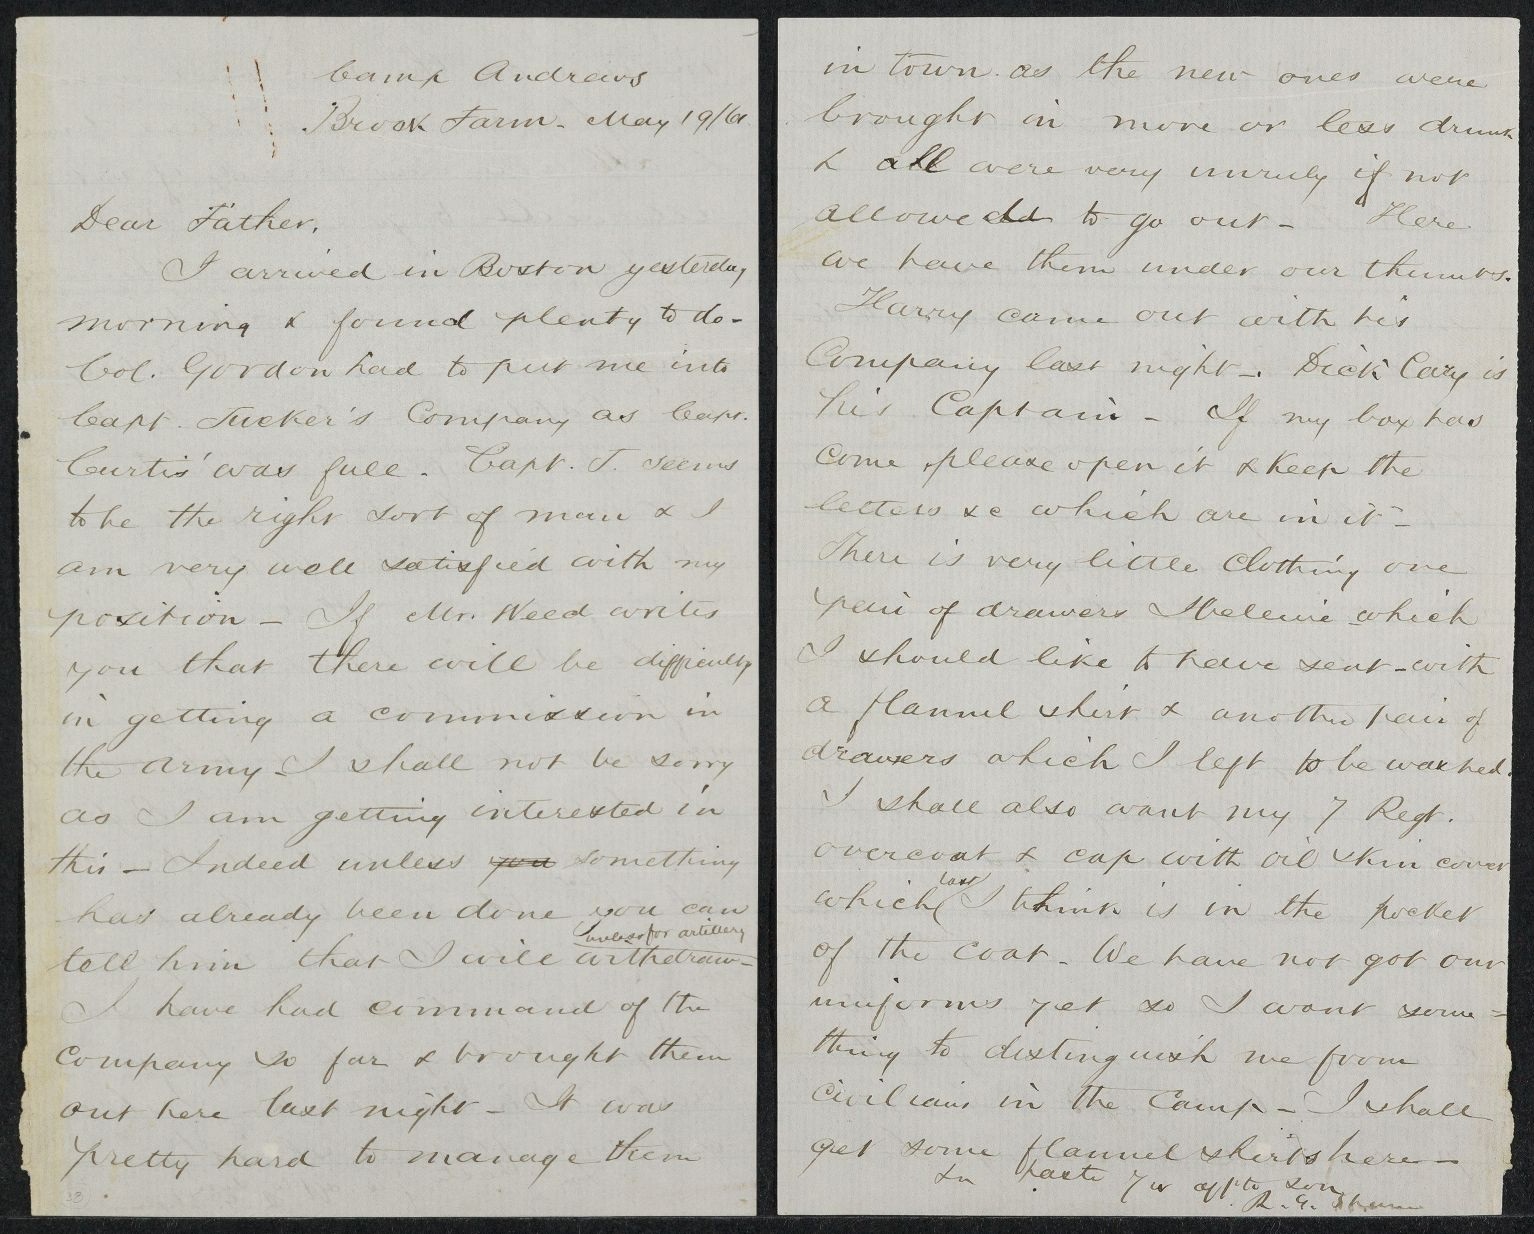 Camp Andrews
Brook Farm - May 19/61
Dear Father,
I arrived in Boston yesterday
morning & found plenty to do -
Col. Gordon had to put me into
Capt. Tucker's Company as Capt.
Curtis' was full. Capt. T. seems
to be the right sort of man & I
am very well satisfied with my
position - If Mr. Weed writes
you that there will be difficulty
in getting a commission in
the army - I shall not be sorry
as I am getting interested in
this - Indeed unless you something
has already been done you can
unless for artillery
tell him that I will withdraw -
I have had command of the
company so far & brought them
out here last night - It was
pretty hard to manage them
in town as the new ones were
brought in more or less drunk
& all were very unruly if not
allowed to go out - Here
we have them under our thumbs.
Harry came out with his
Company last night -. Dick Cary is
his Captain - If my box has
come, please open it & keep the
letters &c which are in it -
There is very little clothing one
pair of drawers I believe which
I should like to have sent - with
a flannel shirt & another pair of
drawers which I left to be washed.
I shall also want my 7 Regt.
overcoat & cap with oil skin cover
last
which I think is in the pocket
of the coat - We have not got our
uniforms yet so I want some=
thing to distinguish me from
civilians in the Camp - I shall
get some flannel shirts here -
In haste Yr aff'te son
R. G. Shaw
38